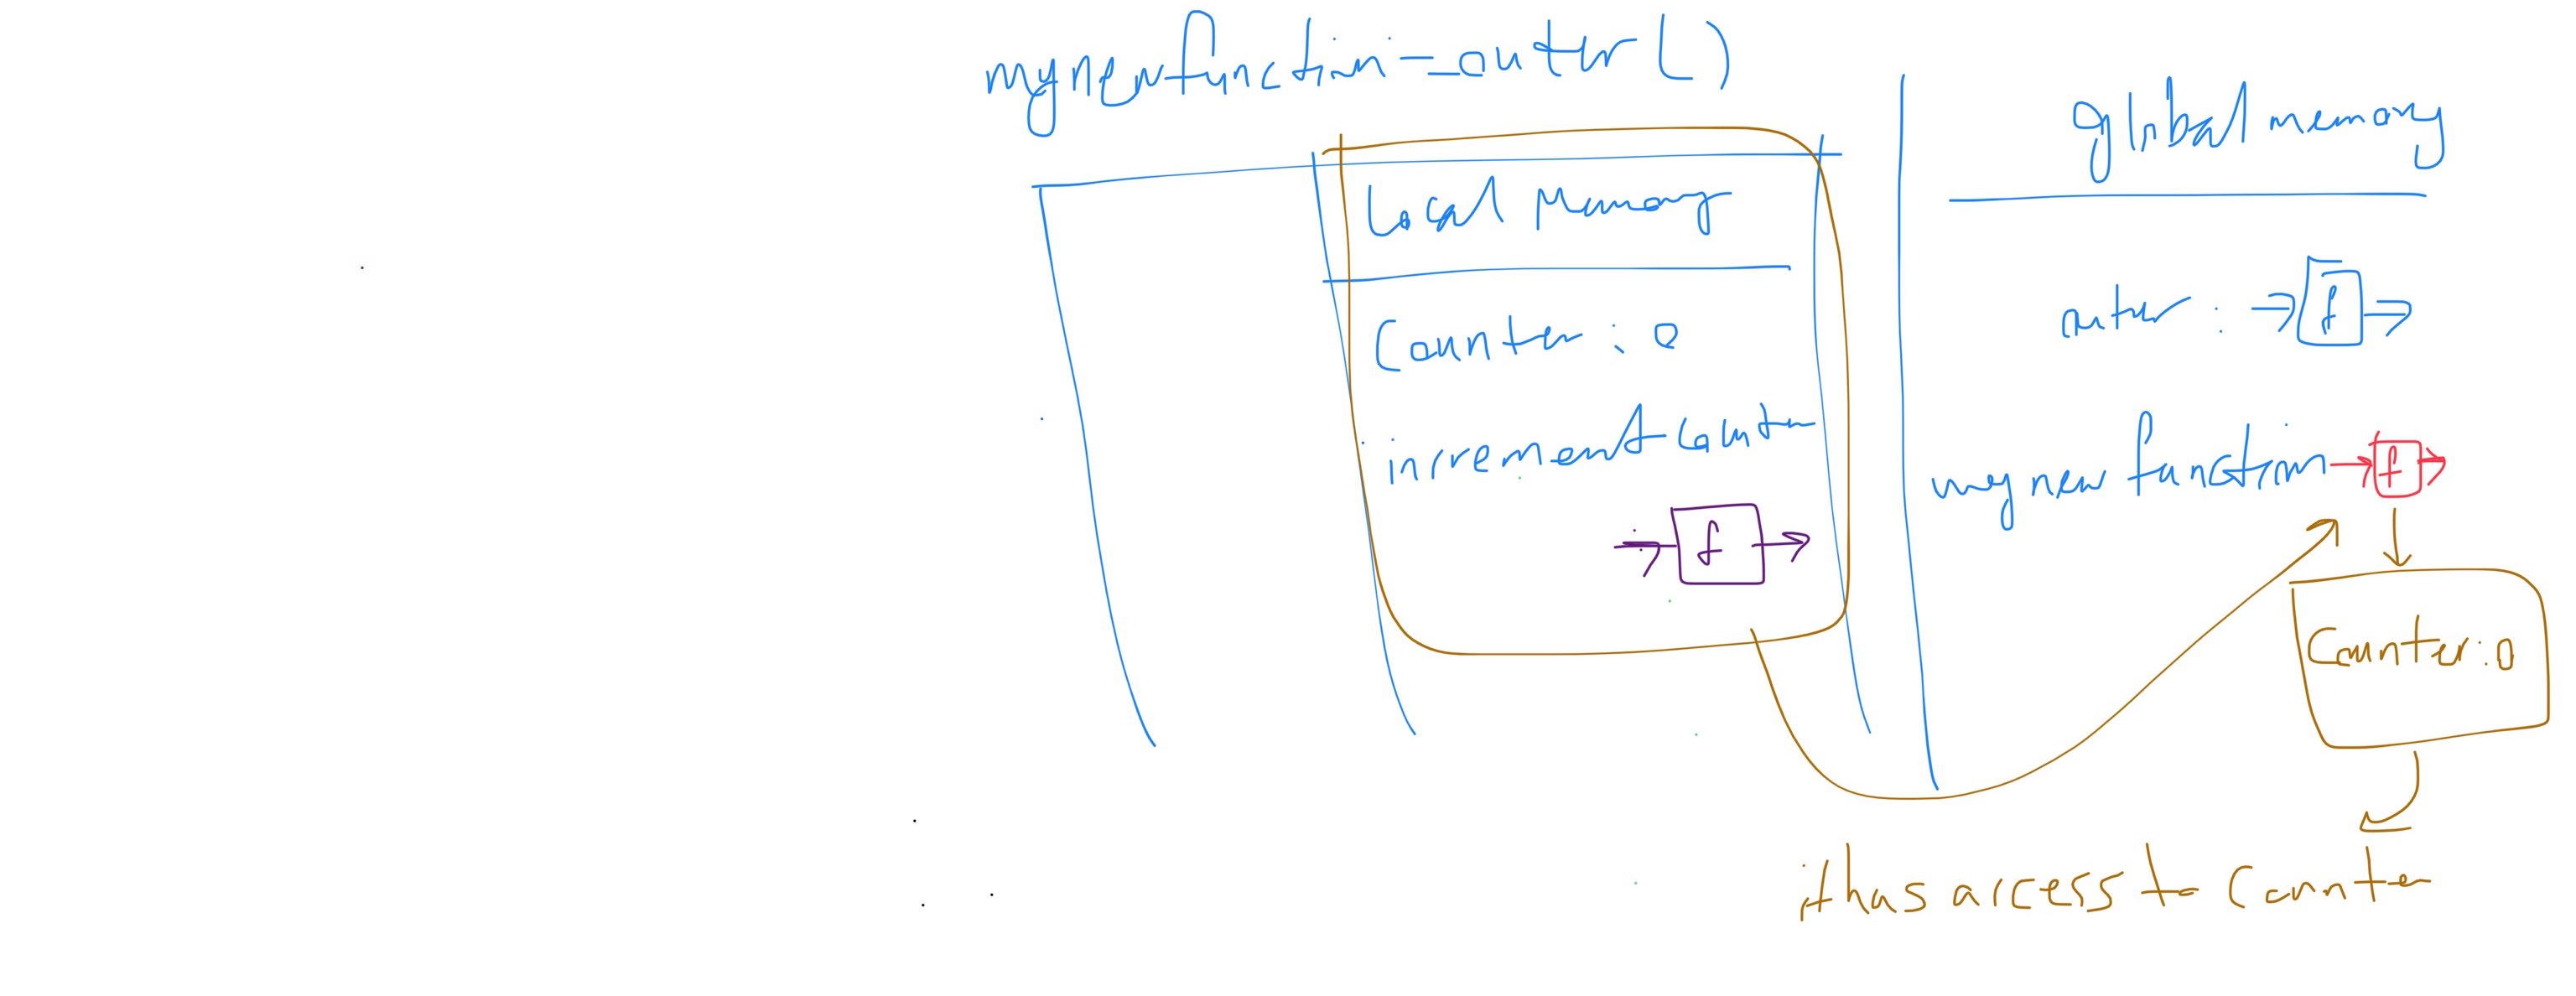 mynewfunction = outer()
Local Memory
Counter : 0
increment counter
f
global memory
outer : f
my new function f
Counter : 0
it has access to counter